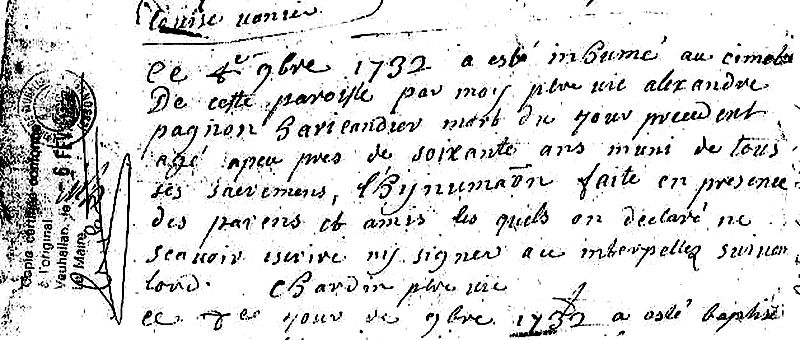 Louise vanier
Ce 4e 9bre 1732 a esté inhumé au cimetie
De cette paroisse par moy ptre vic alexandre
pagnon haricandier mort du jour precedent
agé apeu pres de soixante ans muni de tous
ses sacremens, l'hynumaōn faite en presence
des parens et amis les quels on declaré ne
scavoir escrire ny signer a ce interpellez suivan
lord. Chardin ptre vic
ce jour de 9bre 1732 a esté baptisé
Copie certifiée conforme
à l'original
Vauhallan, le 6 FEV
le Maire